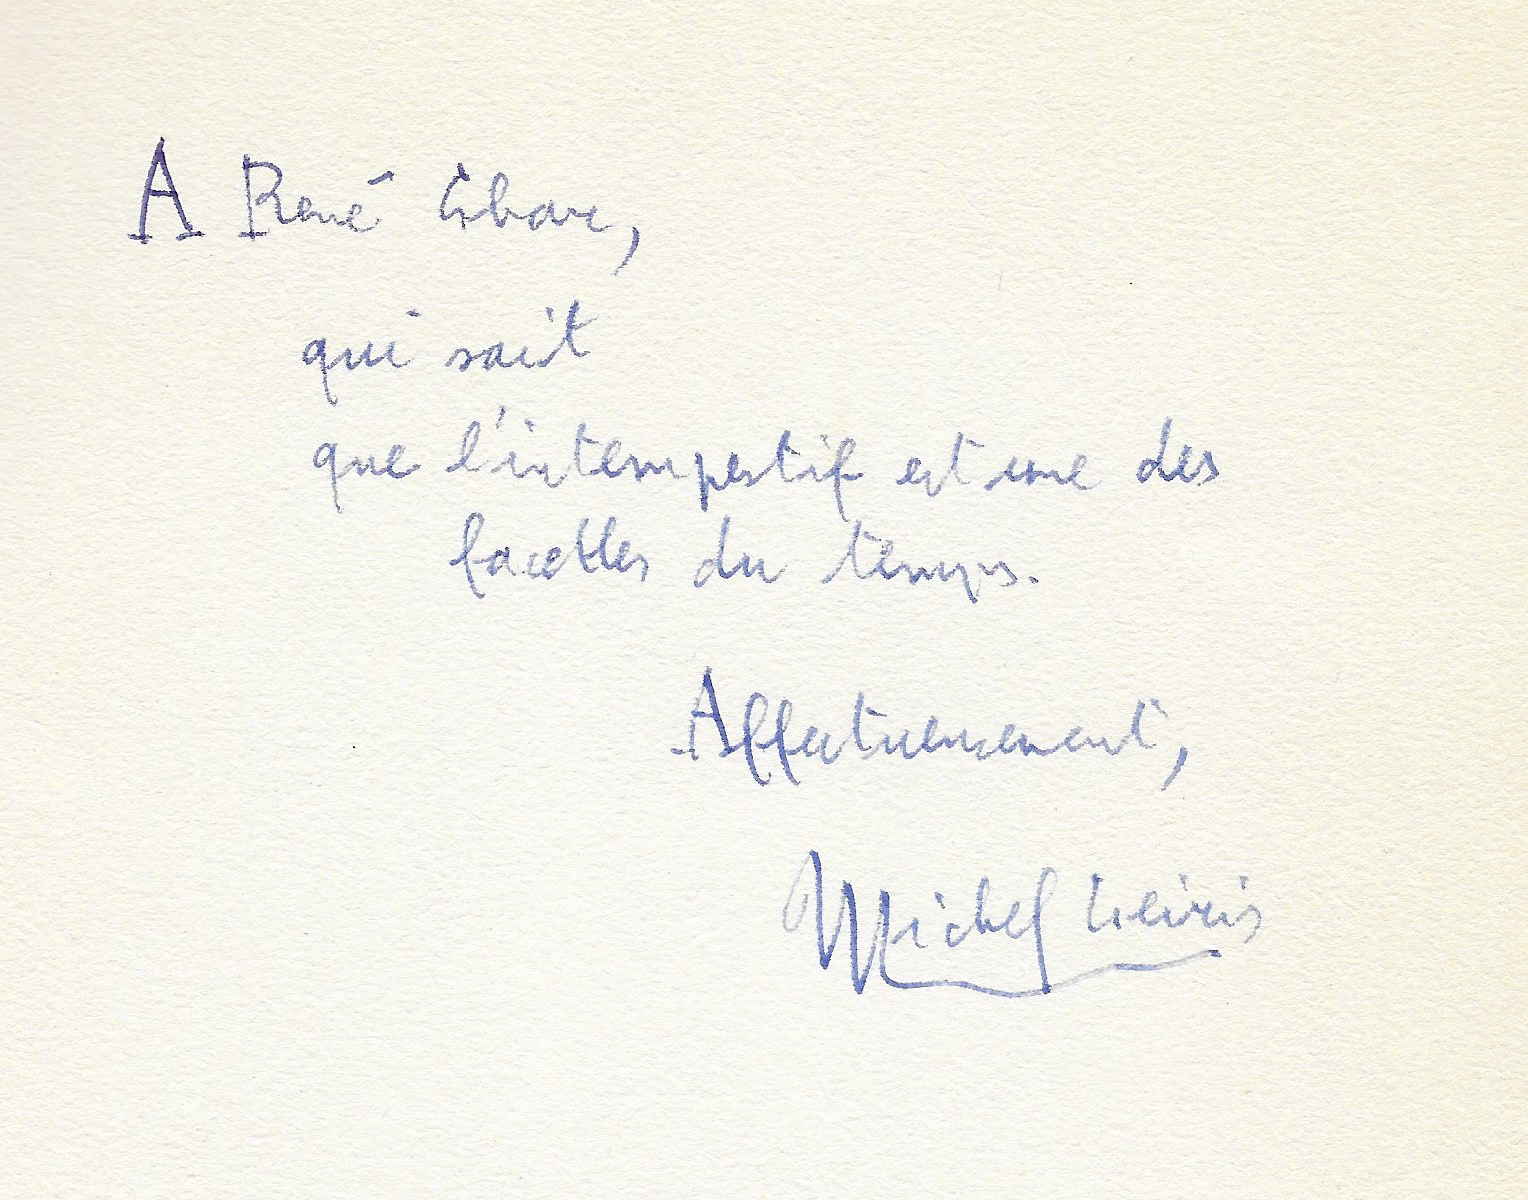 A René Char,
qui sait
que l'intempestif est une des
facettes du temps.
Affectueusement,
Michel Leiris